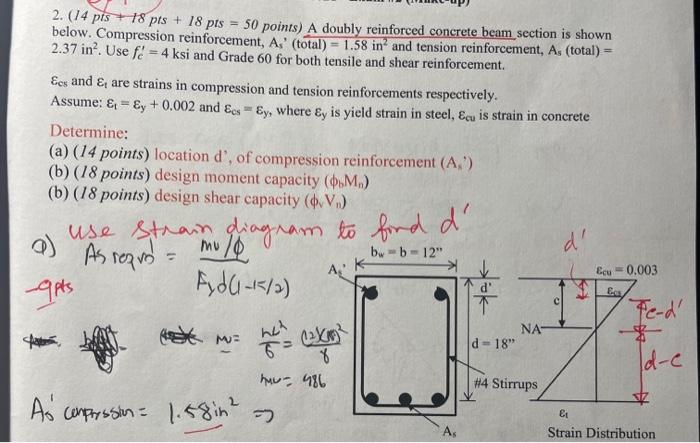 2. (14 pts + 18 pts + 18 pts = 50 points) A doubly reinforced concrete beam section is shown
below. Compression reinforcement, As' (total) = 1.58 in² and tension reinforcement, As (total) =
2.37 in². Use fc' = 4 ksi and Grade 60 for both tensile and shear reinforcement.
Ɛcs and Ɛt are strains in compression and tension reinforcements respectively.
Assume: Ɛt = Ɛy + 0.002 and Ɛcs = Ɛy, where Ɛy is yield strain in steel, Ɛcu is strain in concrete
Determine:
(a) (14 points) location d', of compression reinforcement (As')
(b) (18 points) design moment capacity (ϕbMn)
(b) (18 points) design shear capacity (ϕvVn)
use strain diagram to find d'
a) As reqd = mu/ϕ
Fyd(1-k/2)
-9pts
bw = b = 12"
As'
d'
d'
Ɛcu = 0.003
Ɛcs
c
c-d'
NA
d = 18"
d-c
#4 Stirrups
mu = 486
As' compression = 1.58in² ⇒
As
Ɛt
Strain Distribution